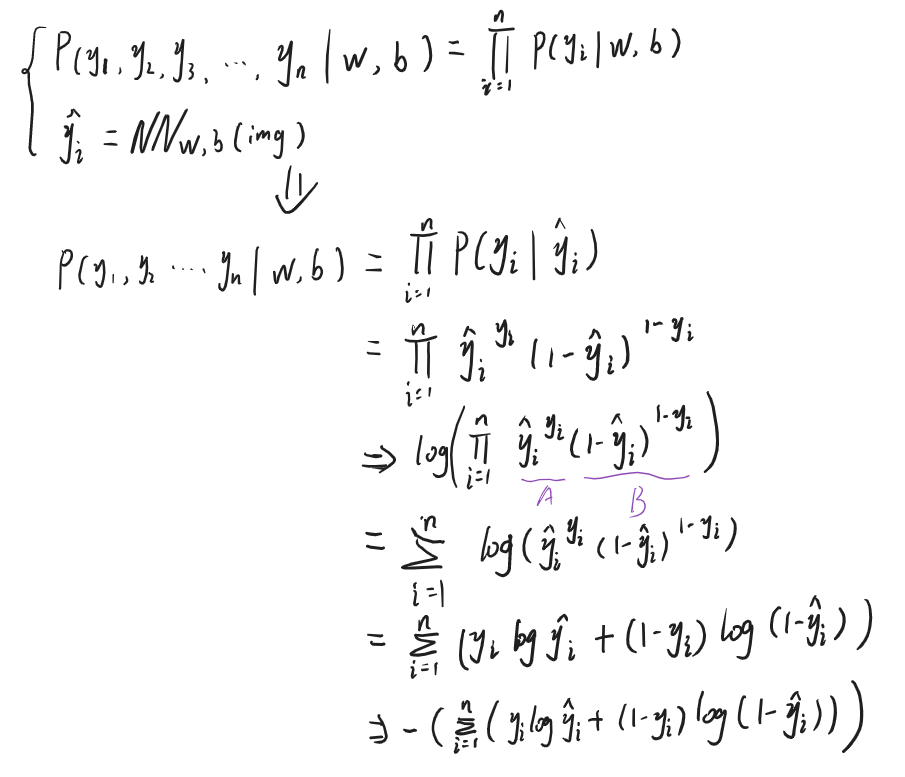 { P(y₁, y₂, y₃, ⋯, yₙ | w, b) = ∏ᵢ₌₁ⁿ P(yᵢ | w, b)
ŷᵢ = NN_{w,b}(img)
⇓
P(y₁, y₂ ⋯ yₙ | w, b) = ∏ᵢ₌₁ⁿ P(yᵢ | ŷᵢ)
= ∏ᵢ₌₁ⁿ ŷᵢ^{yᵢ} (1-ŷᵢ)^{1-yᵢ}
⇒ log(∏ᵢ₌₁ⁿ ŷᵢ^{yᵢ} (1-ŷᵢ)^{1-yᵢ})
A B
= ∑ᵢ₌₁ⁿ log(ŷᵢ^{yᵢ} (1-ŷᵢ)^{1-yᵢ})
= ∑ᵢ₌₁ⁿ (yᵢ log ŷᵢ + (1-yᵢ) log (1-ŷᵢ))
⇒ -(∑ᵢ₌₁ⁿ (yᵢ log ŷᵢ + (1-yᵢ) log(1-ŷᵢ)))